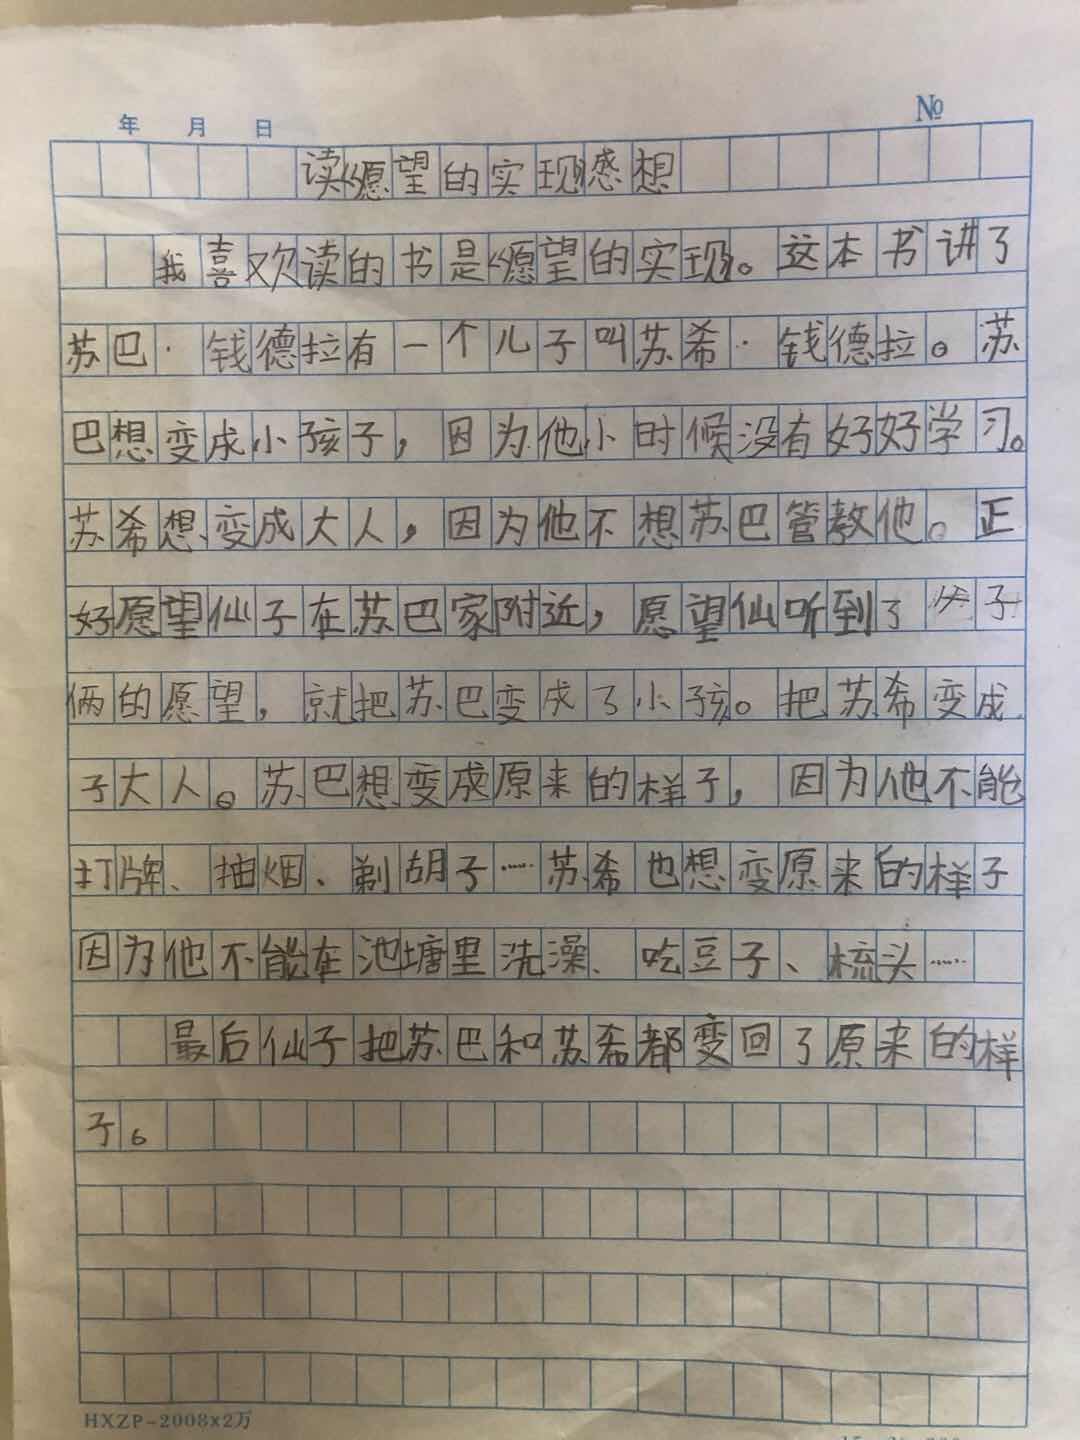 年 月 日 №
读《愿望的实现》感想
我喜欢读的书是《愿望的实现》。这本书讲了
苏巴·钱德拉有一个儿子叫苏希·钱德拉。苏
巴想变成小孩子，因为他小时候没有好好学习。
苏希想变成大人，因为他不想苏巴管教他。正
好愿望仙子在苏巴家附近，愿望仙听到了父子
俩的愿望，就把苏巴变成了小孩。把苏希变成
子大人。苏巴想变成原来的样子，因为他不能
打牌、抽烟、剃胡子……苏希也想变原来的样子
因为他不能在池塘里洗澡、吃豆子、梳头……
最后仙子把苏巴和苏希都变回了原来的样
子。
HXZP-2008×2万